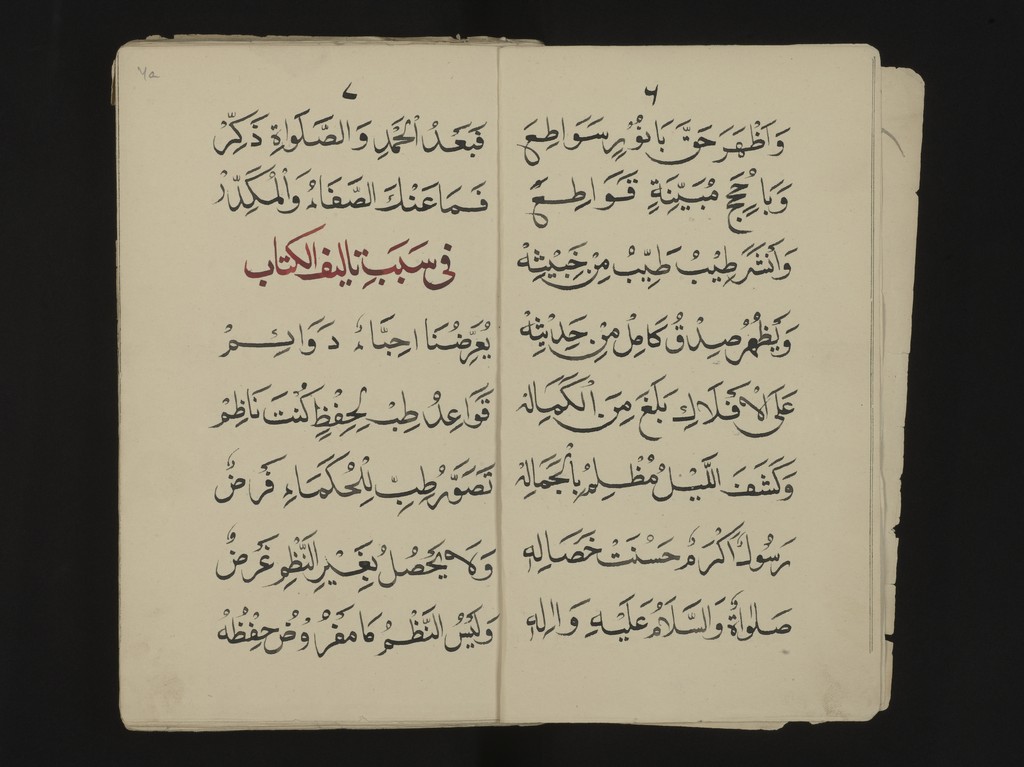 ٦
وَاَظْهَرَ حَقَّ بَانُوْرٍ سَوَاطِعَ
وَبَا حُجَجٍ مُبَيِّنَةٍ قَوَاطِعَ
وَاَنْشَرَ طِيْبُ طَيِّبُ مِنْ خَبِيْثِهْ
وَيَظْهُرُ صِدْقُ كَامِلْ مِنْ حَدِيْثِهْ
عَلَى الْاَفْلَاكِ بَلَغَ مِنَ الْكَمَالِهْ
وَكَشَفَ اللَّيْلُ مُظْلِمُ بِالْجَمَالِهْ
رَسُوْلٌ اَكْرَمٌ حَسْنَتْ خَصَالِهٖ
صَلٰواةٌ وَالسَّلَامُ عَلَيْهِ وَاٰلِهٖ
٧
٧a
فَبَعَدُ الْحَمْدِ وَالصَّلَواةِ ذَكِّرْ
فَمَا عَنْكَ الصَّفَاءُ وَالْمُكَدِّرْ
فى سَبَبِ تاليف الكتاب
يُعَرِّضُنَا احِبَّاءٌ دَوَائِمْ
قَوَاعِدُ طِبْ لِحِفْظٍ كُنْتَ نَاظِمْ
تَصَوَّرُ طِبِّ لِلْحُكَمَاءِ فَرْضٌ
وَلَا يَحْصُلُ بِغَيْرِ النَّظْمِ غَرْضٌ
وَلَيْسُ النَّظْمُ مَا مَفْرُوْضُ حِفْظُهُ